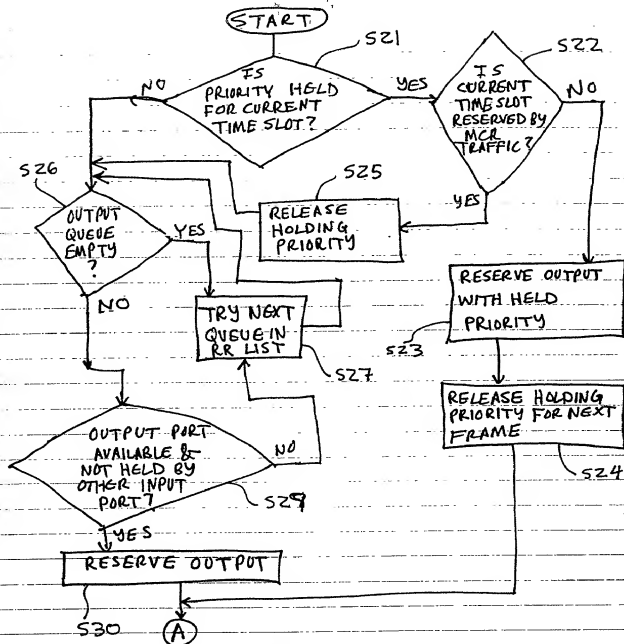 START
S21
S22
IS
PRIORITY HELD
FOR CURRENT
TIME SLOT?
NO
YES
IS
CURRENT
TIME SLOT
RESERVED BY
MCR
TRAFFIC?
NO
YES
S25
RELEASE
HOLDING
PRIORITY
S26
OUTPUT
QUEUE
EMPTY
?
YES
NO
TRY NEXT
QUEUE IN
RR LIST
S27
RESERVE OUTPUT
WITH HELD
PRIORITY
S23
RELEASE HOLDING
PRIORITY FOR NEXT
FRAME
S24
OUTPUT PORT
AVAILABLE &
NOT HELD BY
OTHER INPUT
PORT?
NO
S29
YES
RESERVE OUTPUT
S30
A